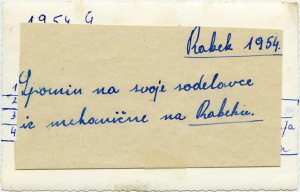 1954
Rabek 1954.
Spomin na svoje sodelavce
iz mehanične na Rabeku.
1
2
3
4